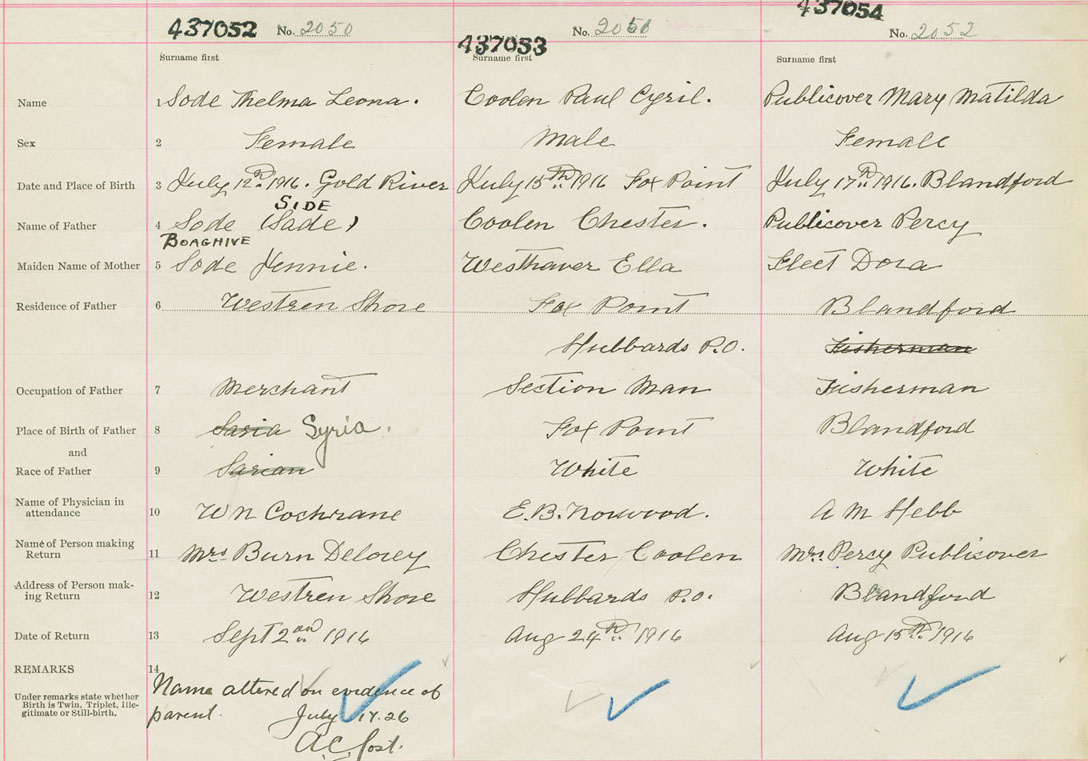 437052 No. 2050 437053 No. 2051 437054 No. 2052
Surname first Surname first Surname first
Name 1 Sode Thelma Leona. Coolen Paul Cyril. Publicover Mary Matilda
Sex 2 Female Male Female
Date and Place of Birth 3 July 12th 1916. Gold River July 15th 1916 Fox Point July 17th 1916. Blandford
SIDE
Name of Father 4 Sode (Sade) Coolen Chester. Publicover Percy
BOAGHIVE
Maiden Name of Mother 5 Sode Jennie. Westhaver Ella Fleet Dora
Residence of Father 6 Westren Shore Fox Point Blandford
Hubbards P.O. Fisherman
Occupation of Father 7 Merchant Section Man Fisherman
Place of Birth of Father 8 Saria Syria. Fox Point Blandford
and
Race of Father 9 Sarian White White
Name of Physician in
attendance 10 W N Cochrane E.B. Norwood. A M Hebb
Name of Person making
Return 11 Mrs Burn Delorey Chester Coolen Mrs. Percy Publicover
Address of Person mak-
ing Return 12 Westren Shore Hubbards P.O. Blandford
Date of Return 13 Sept 2nd 1916 Aug 24th 1916 Aug 15th 1916
REMARKS 14
Under remarks state whether
Birth is Twin, Triplet, Ille-
gitimate or Still-birth.
Name altered on evidence of
parent. July 17.26
A.C. Jost.